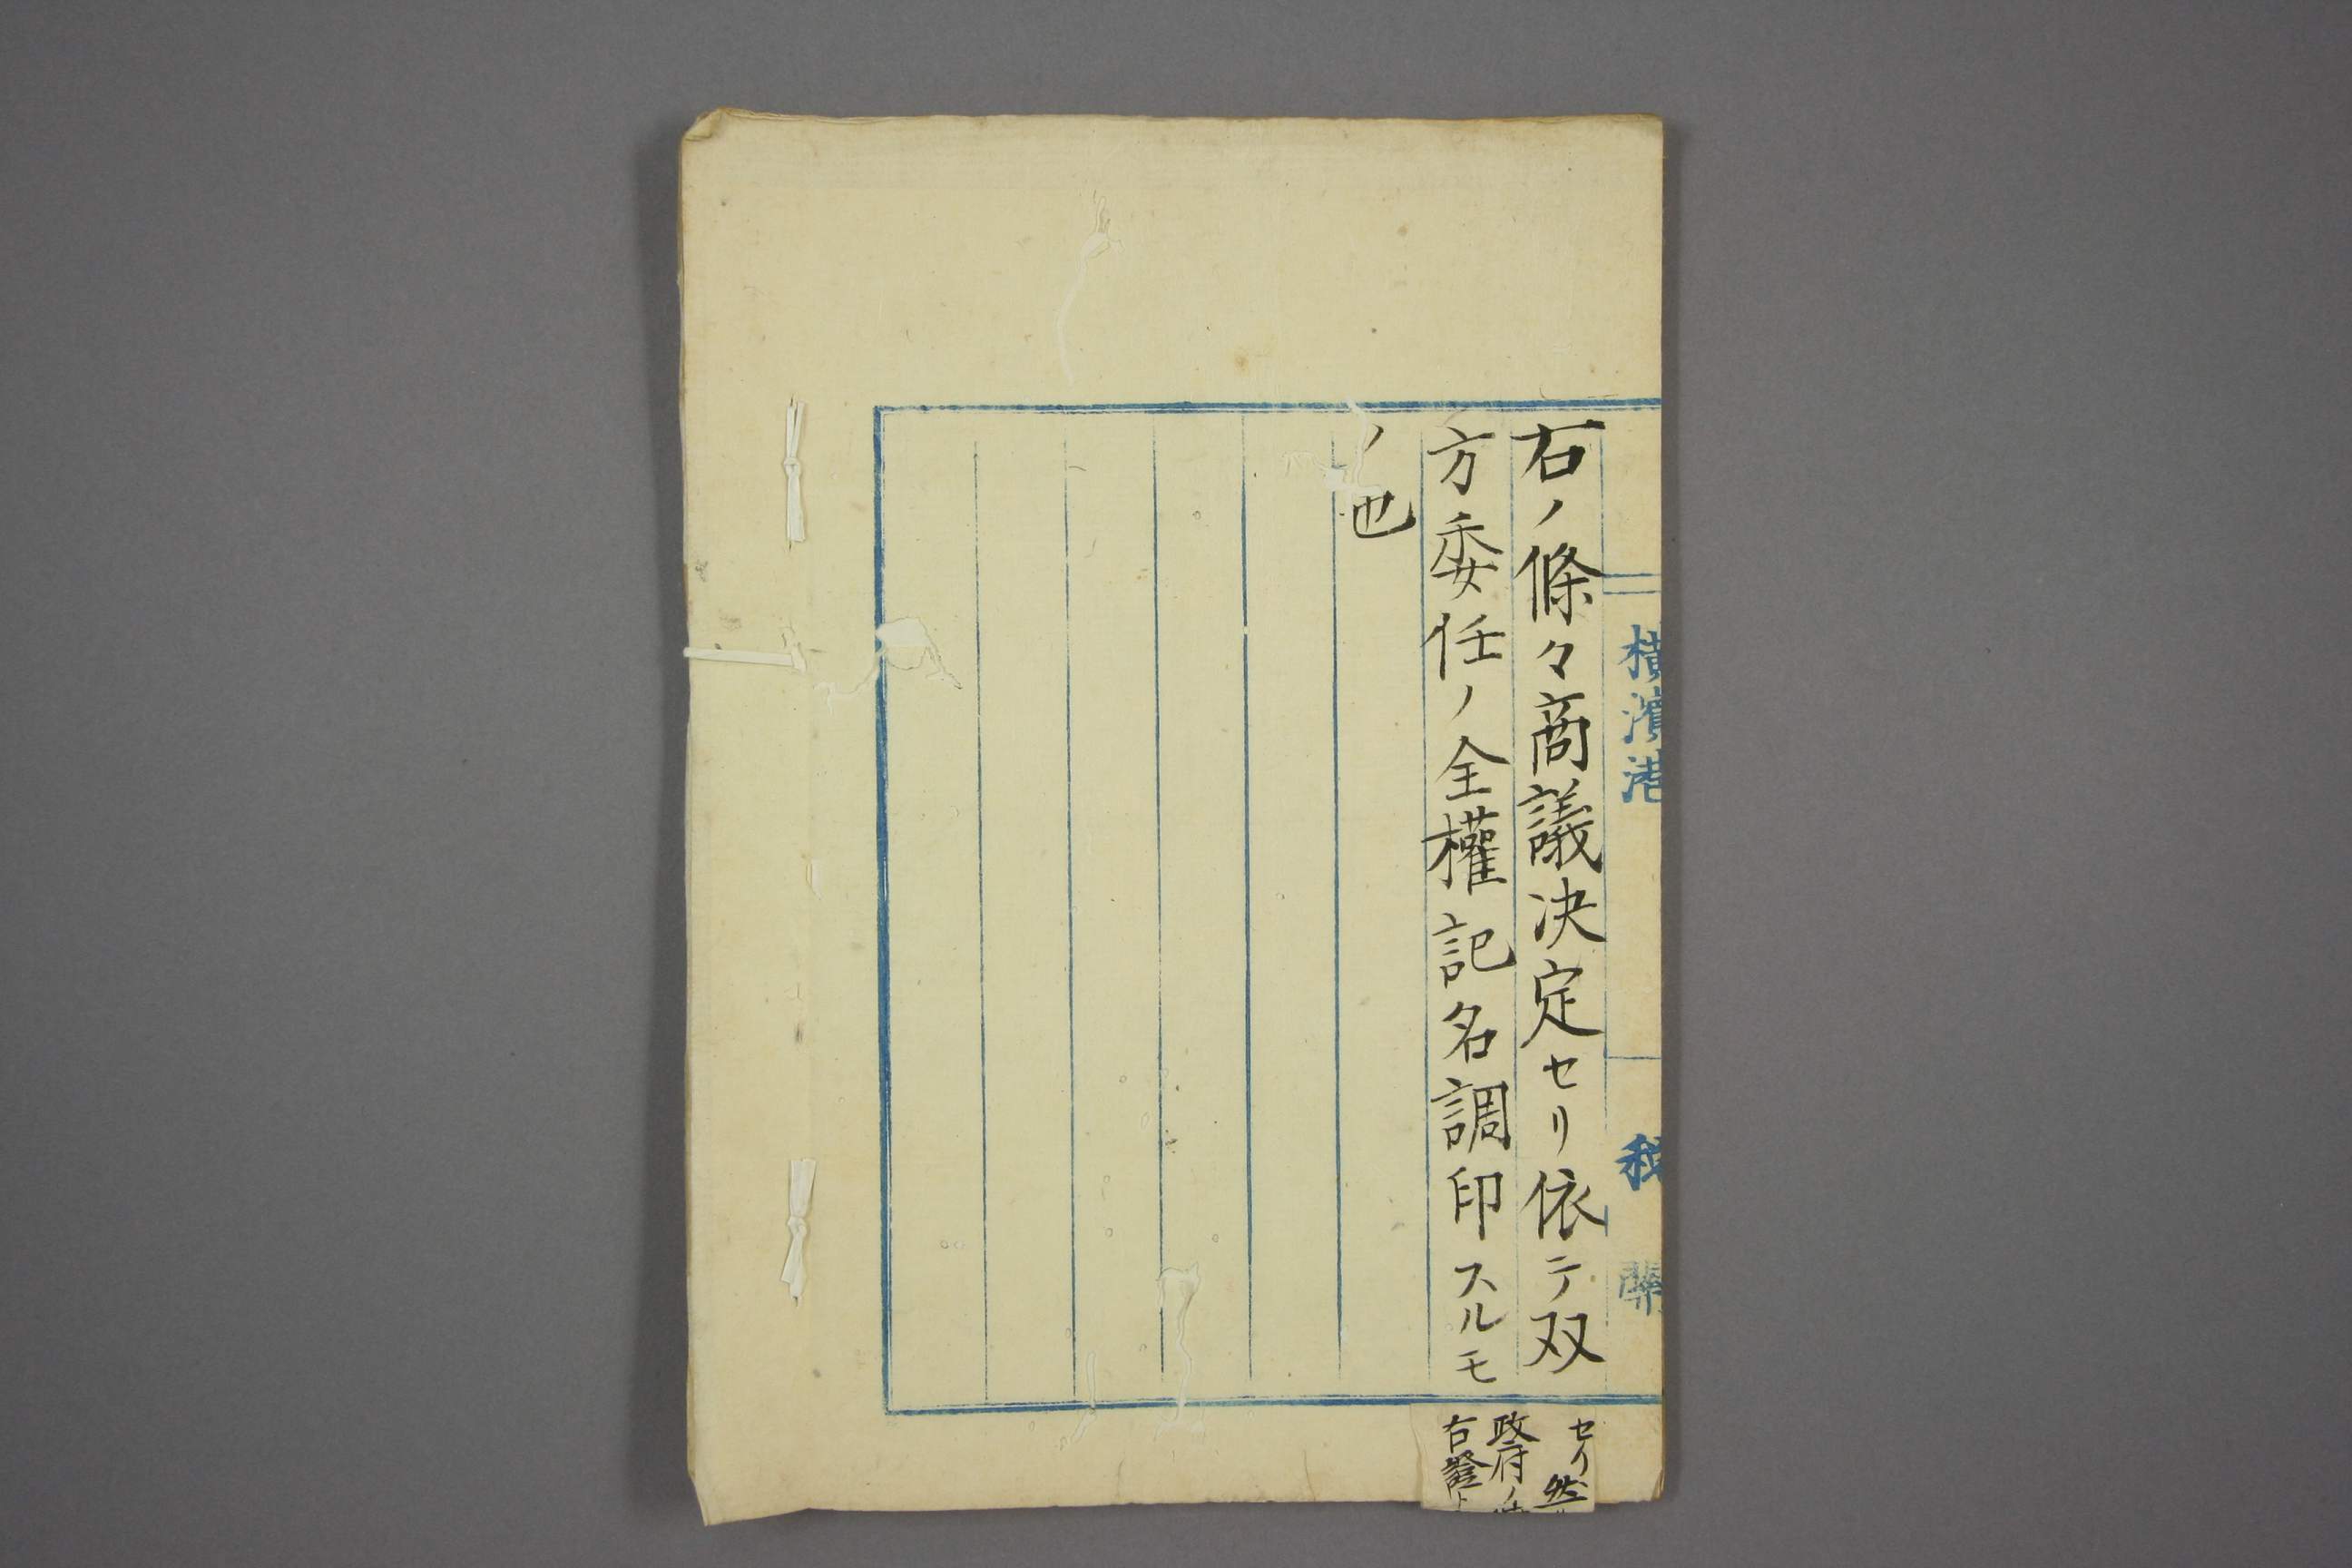 横濱港
税關
右ノ條々商議決定セリ依テ双
方委任ノ全權記名調印スルモ
ノ也
セリ然
政府ノ
右證